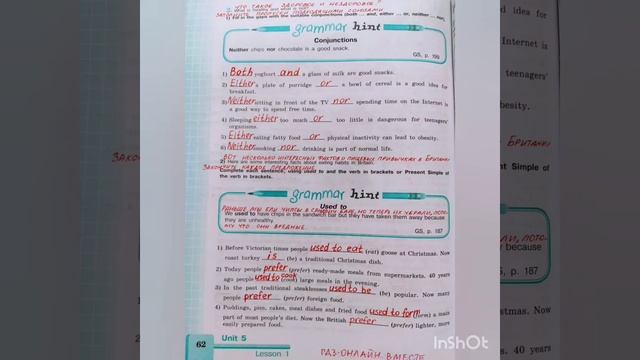 ЧТО ТАКОЕ ЗДОРОВОЕ И НЕЗДОРОВОЕ?
ЗАПОЛНИТЕ ПРОПУСКИ ПОДХОДЯЩИМИ СОЮЗАМИ
1) Fill in the gaps with the suitable conjunctions (both ... and, either ... or, neither ... nor).
grammar hint
Conjunctions
Neither chips nor chocolate is a good snack.
GS, p. 199
1) Both yoghurt and a glass of milk are good snacks.
2) Either a plate of porridge or a bowl of cereal is a good idea for
breakfast.
3) Neither sitting in front of the TV nor spending time on the Internet is
a good way to spend free time.
4) Sleeping either too much or too little is dangerous for teenagers'
organisms.
5) Either eating fatty food or physical inactivity can lead to obesity.
6) Neither smoking nor drinking is part of normal life.
ВОТ НЕСКОЛЬКО ИНТЕРЕСНЫХ ФАКТОВ О ПИЩЕВЫХ ПРИВЫЧКАХ В БРИТАНИИ
2) Here are some interesting facts about eating habits in Britain.
ЗАКОНЧИТЕ КАЖДОЕ ПРЕДЛОЖЕНИЕ
Complete each sentence, using used to and the verb in brackets or Present Simple of
the verb in brackets.
grammar hint
Used to
РАНЬШЕ МЫ ЕЛИ ЧИПСЫ В СЭНДВИЧ БАРЕ, НО ТЕПЕРЬ ИХ УБРАЛИ, ПОТО-
We used to have chips in the sandwich bar but they have taken them away because
they are unhealthy.
МУ ЧТО ОНИ ВРЕДНЫЕ
GS, p. 187
1) Before Victorian times people used to eat (eat) goose at Christmas. Now
roast turkey is (be) a traditional Christmas dish.
2) Today people prefer (prefer) ready-made meals from supermarkets. 40 years
ago people used to cook (cook) large meals in the evening.
3) In the past traditional steakhouses used to be (be) popular. Now many
people prefer (prefer) foreign food.
4) Puddings, pies, cakes, meat dishes and fried food used to form a main
part of most people's diet. Now the British prefer (prefer) lighter, more
easily prepared food.
62
Unit 5
Lesson 1
ГДЗ-ОНЛАЙН ВМЕСТЕ
InShOt
d idea for
Internet is
teenagers'
besity.
БРИТАНИИ
nt Simple of
because
S, p. 187
mas. Now
40 years
ЗАКО